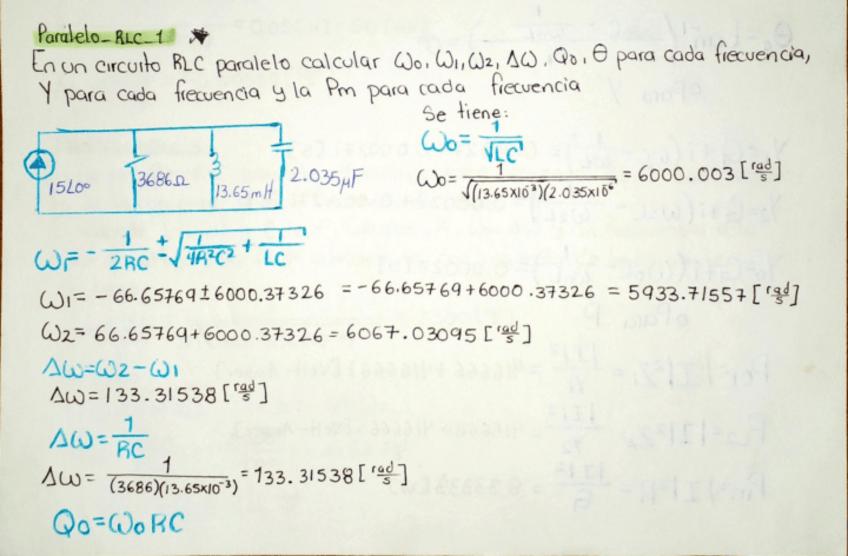 Paralelo_RLC_1 ★
En un circuito RLC paralelo calcular ω₀, ω₁, ω₂, Δω, Q₀, θ para cada frecuencia,
Y para cada frecuencia y la Pm para cada frecuencia
Se tiene:
ω₀ = 1/√LC
ω₀ = 1/√((13.65x10⁻³)(2.035x10⁻⁶ = 6000.003 [rad/s]
15∠0° 3686Ω 13.65mH 2.035μF
ω₁ = - 1/2RC ± √(1/4R²C² + 1/LC)
ω₁ = -66.65769 ± 6000.37326 = -66.65769 + 6000.37326 = 5933.71557 [rad/s]
ω₂ = 66.65769 + 6000.37326 = 6067.03095 [rad/s]
Δω = ω₂ - ω₁
Δω = 133.31538 [rad/s]
Δω = 1/RC
Δω = 1/(3686)(13.65x10⁻³) = 133.31538 [rad/s]
Q₀ = ω₀RC